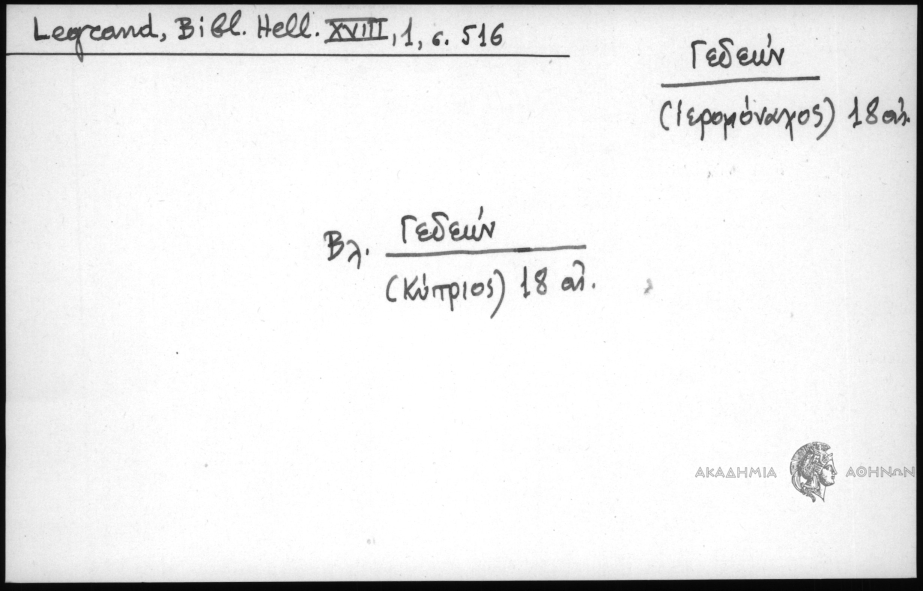 Legrand, Bibl. Hell. XVIII, 1, σ. 516
Γεδεών
(Ιερομόναχος) 18 αἰ.
Βλ. Γεδεών
(Κύπριος) 18 αἰ.
ΑΚΑΔΗΜΙΑ ΑΘΗΝΩΝ